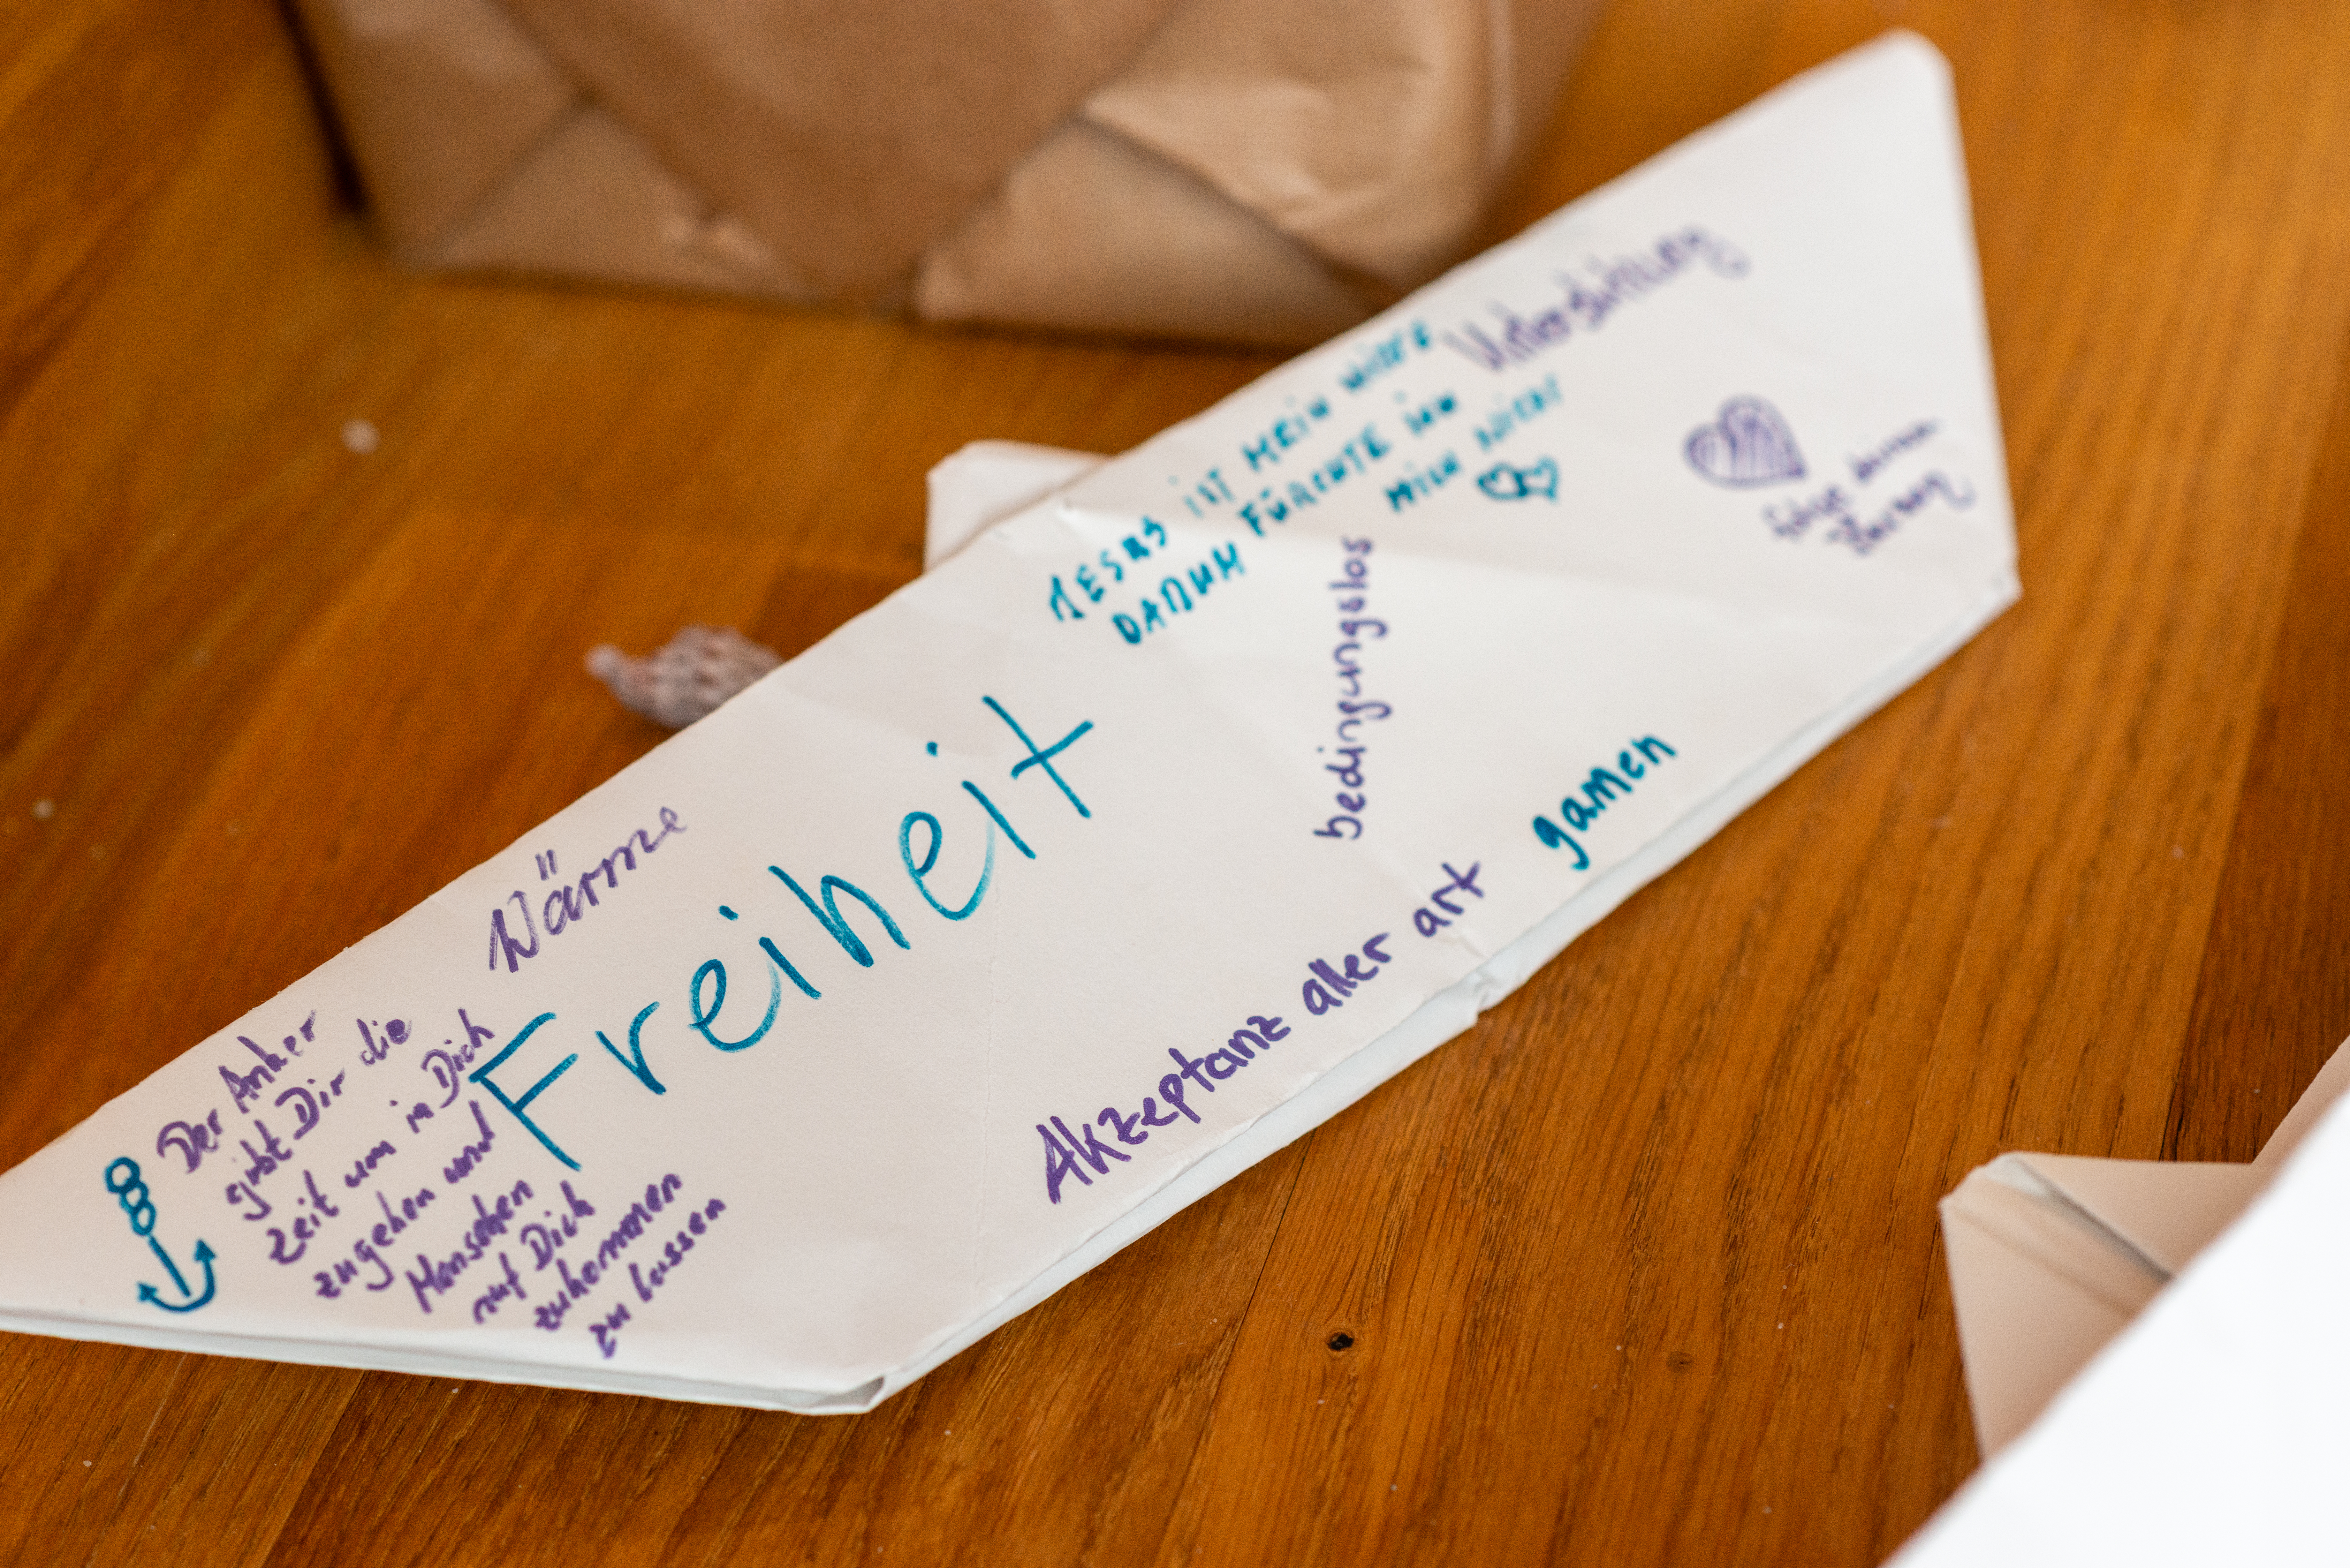 Unterstützung
JESUS IST MEIN
DARUM FÜRCHTE ICH
MICH NICHT
bedingungslos
Wärme
Freiheit
gamen
Akzeptanz aller art
Der Anker
gibt Dir die
Zeit um in Dich
zugehen und
Menschen
auf Dich
zukommen
zu lassen